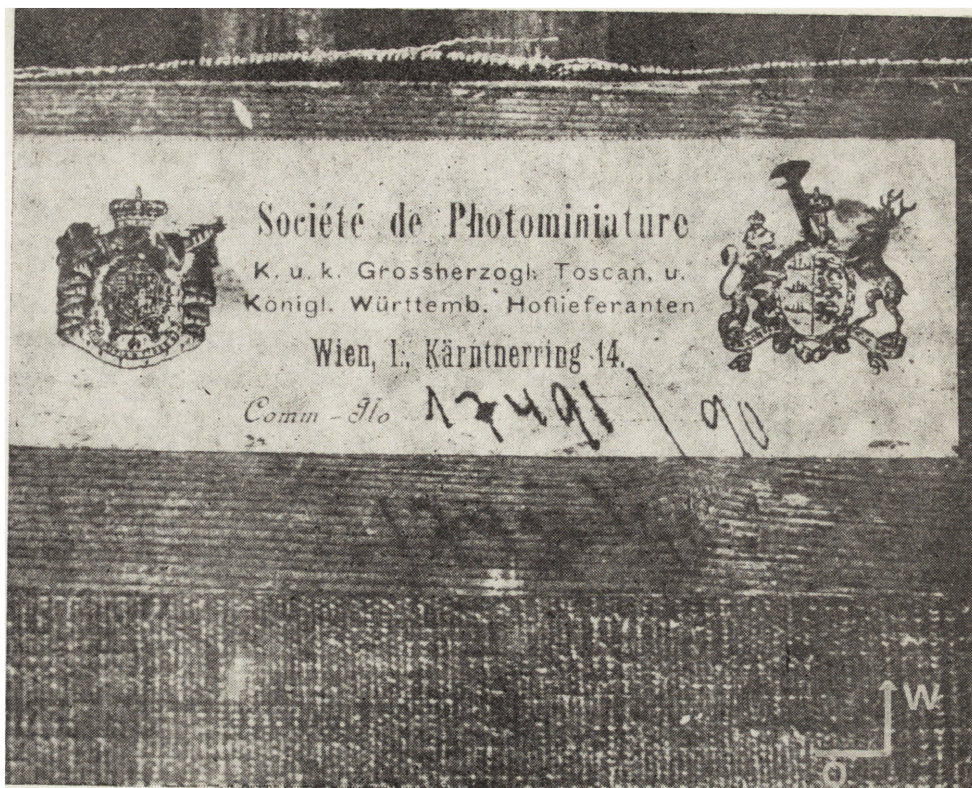 Société de Photominiature
K. u. k. Grossherzogl. Toscan. u.
Königl. Württemb. Hoflieferanten
Wien, I., Kärntnerring 14.
Comm-No 17491/90
W
O